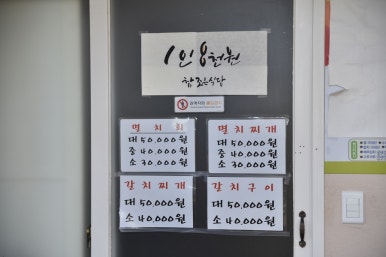 1인 8천원
참조은식당
멸치회
대 50,000원
중 40,000원
소 30,000원
멸치찌개
대 50,000원
중 40,000원
소 30,000원
갈치찌개
대 50,000원
소 40,000원
갈치구이
대 50,000원
소 40,000원